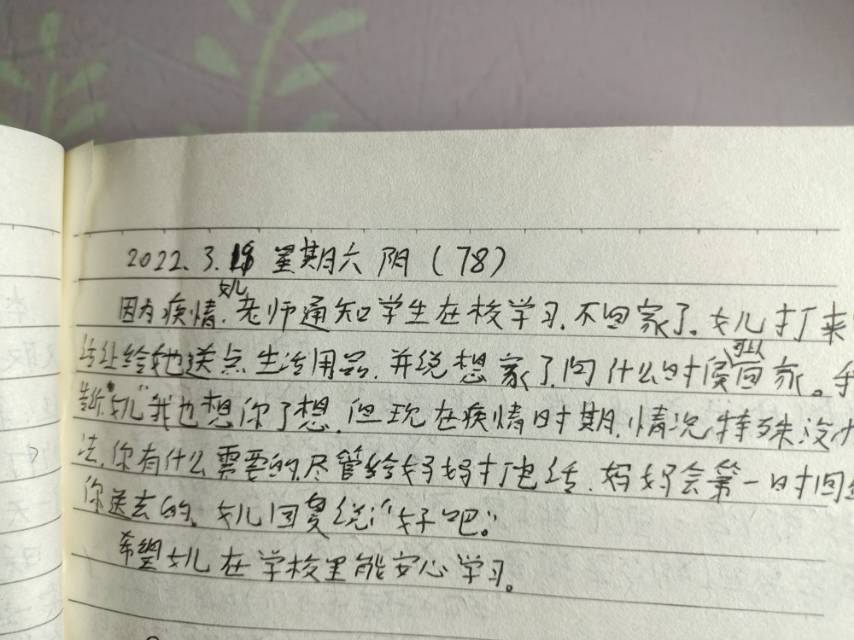 2022.3.19 星期六 阴（78）
因为疫情，女儿老师通知学生在校学习，不回家了。女儿打来
话让给她送点生活用品，并说想家了，问什么时候可以回家。我
告诉女儿“我也想你了想，但现在疫情时期，情况特殊没
法，你有什么需要的尽管给妈妈打电话，妈妈会第一时间
你送去的。女儿回复说：“好吧。”
希望女儿在学校里能安心学习。